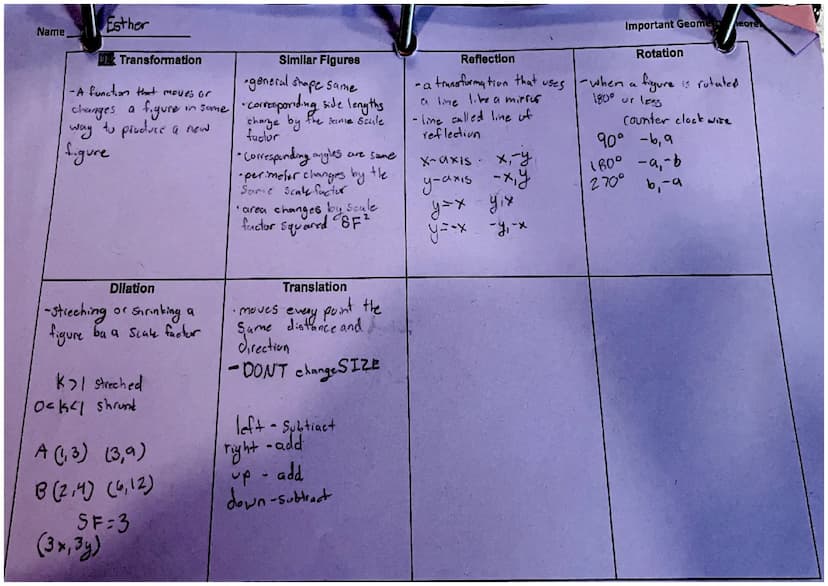 Name Esther
Important Geome
Transformation
-A function that moves or
changes a figure in some
way to produce a new
figure
Similar Figures
•general shape same
•corresponding side lengths
change by the same scale
factor
•corresponding angles are same
•perimeter changes by the
same scale factor
•area changes by scale
factor squared SF²
Reflection
-a transformation that uses
a line like a mirror
-line called line of
reflection
x-axis x,-y
y-axis -x,y
y=x y,x
y=-x -y,-x
Rotation
-when a figure is rotated
180° or less
counter clock wise
90° -b,a
180° -a,-b
270° b,-a
Dilation
-streching or shrinking a
figure ba a scale factor
K>1 streched
0<k<1 shrunk
A (1,3) (3,9)
B (2,4) (6,12)
SF=3
(3x,3y)
Translation
•moves every point the
same distance and
direction
-DONT change SIZE
left - subtract
right - add
up - add
down - subtract